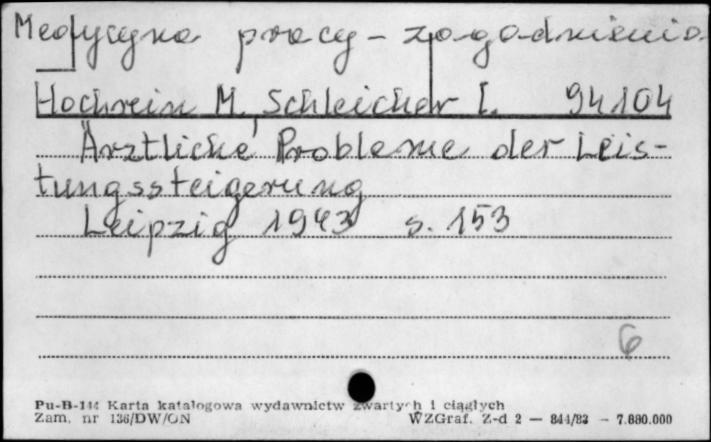 Medycyna pracy - zagadnienia
Hochrein M., Schleicher I. 94104
Ärztliche Probleme der Leis-
tungssteigerung
Leipzig 1943 s. 153
6
Pu-B-144 Karta katalogowa wydawnictw zwartych i ciągłych
Zam. nr 136/DW/ON WZGraf. Z-d 2 — 844/83 — 7.680.000